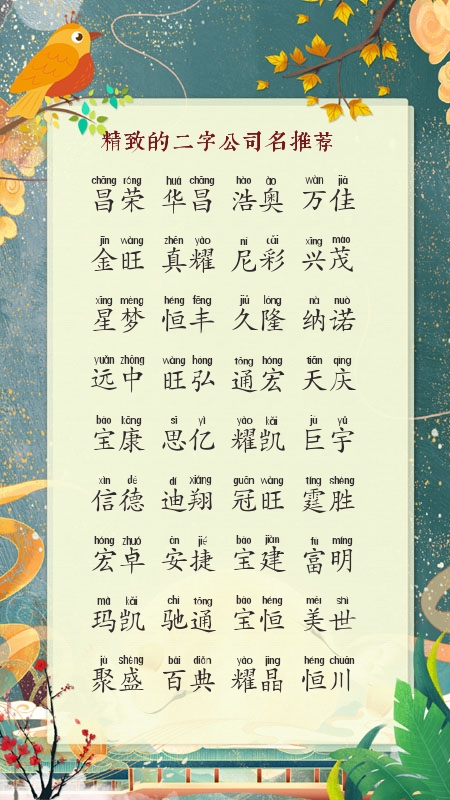 精致的二字公司名推荐
chāng róng huá chāng hào ào wàn jiā
昌荣 华昌 浩奥 万佳
jīn wàng zhēn yào ní cǎi xīng mào
金旺 真耀 尼彩 兴茂
xīng mèng héng fēng jiǔ lóng nà nuò
星梦 恒丰 久隆 纳诺
yuǎn zhōng wàng hóng tōng hóng tiān qìng
远中 旺弘 通宏 天庆
bǎo kāng sī yì yào kǎi jù yǔ
宝康 思亿 耀凯 巨宇
xìn dé dí xiáng guān wàng tíng shèng
信德 迪翔 冠旺 霆胜
hóng zhuó ān jié bǎo jiàn fù míng
宏卓 安捷 宝建 富明
mǎ kǎi chí tōng bǎo héng měi shì
玛凯 驰通 宝恒 美世
jù shèng bǎi diǎn yào jīng héng chuān
聚盛 百典 耀晶 恒川